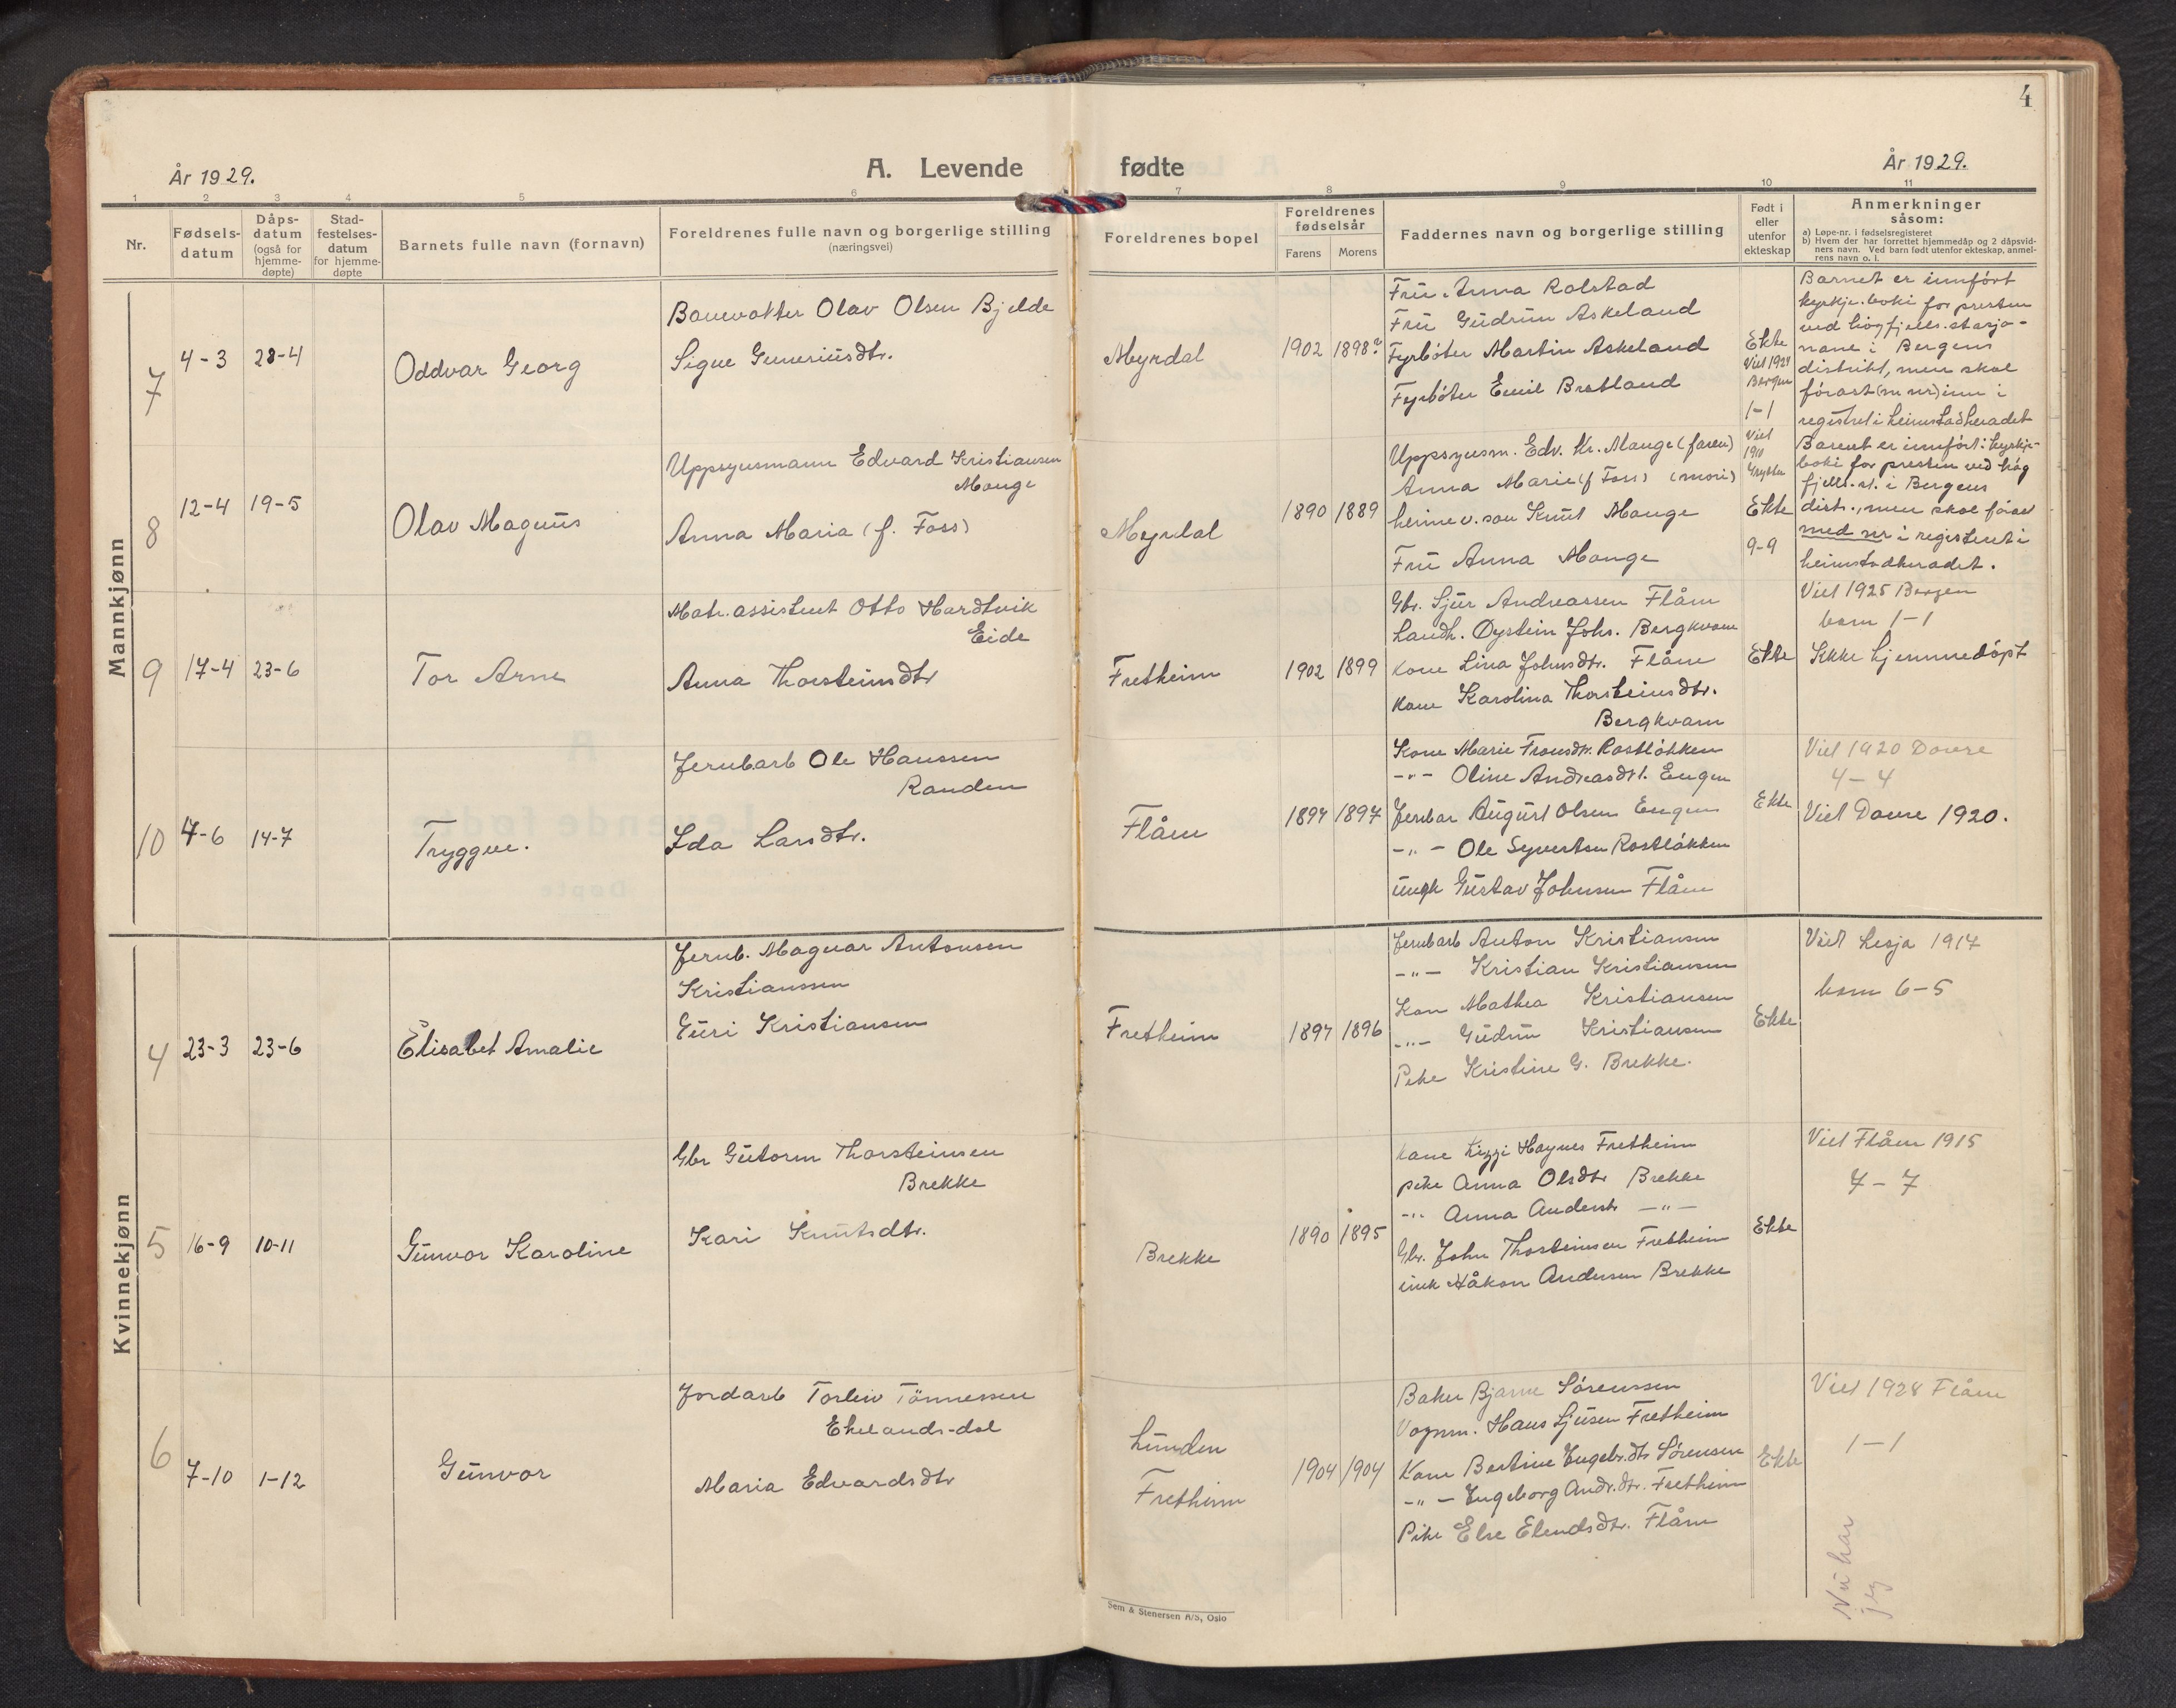 4
År 1929.
A. Levende fødte
År 1929.
1 2 3 4 5 6 7 8 9 10 11
Nr.
Fødsels-
datum
Dåps-
datum
(også for
hjemme-
døpte)
Stad-
festelses-
datum
for hjemme-
døpte
Barnets fulle navn (fornavn)
Foreldrenes fulle navn og borgerlige stilling
(næringsvei)
Foreldrenes bopel
Foreldrenes
fødselsår
Farens Morens
Faddernes navn og borgerlige stilling
Født i
eller
utenfor
ekteskap
Anmerkninger
såsom:
a) Løpe-nr. i fødselsregisteret
b) Hvem der har forrettet hjemmedåp og 2 dåpsvid-
ners navn. Ved barn født utenfor ekteskap, anmel-
rens navn o. l.
Mannkjønn
7
4-3
28-4
Oddvar Georg
Banevakter Olav Olsen Bjelde
Signe Guneriusdtr.
Myrdal
1902
1898?
Fru Anna Rolstad
Fru Gudrun Askeland
Fyrbøter Martin Askeland
Fyrbøter Emil Bratland
Ekte
Viet 1924
Bergen
1-1
Barnet er innført
kyrkje.boki for presten
ved høgfjells.stasjo-
nane i Bergens
distrikt, men skal
førast (m nr) inn i
registret i heimstadheradet
8
12-4
19-5
Olav Magnus
Uppsynsmann Edvard Kristiansen
Mange
Anna Maria (f. Foss)
Myrdal
1890
1889
Uppsynsm. Edv. Kr. Mange (faren)
Anna Marie (f Foss) (mori)
heime v. son Knut Mange
Fru Anna Mange
Viet
1910
Ekte
9-9
Barnet er innført i kyrkje-
boki for presten ved høg
fjells.st. i Bergens
distr., men skal førast
med nr i registeret i
heimstadheradet.
9
17-4
23-6
Tor Arne
Matr.assistent Otto Hardtvik
Eide
Anna Thorsteinsdtr
Fretheim
1902
1899
Gbr. Sjur Andreassen Flåm
Landh. Øystein Johs. Bergkvam
Kone Lina Johnsdtr. Flåm
Kone Karolina Thorsteinsdtr.
Bergkvam
Ekte
Viet 1925 Bergen
barn 1-1
Ikke hjemmedøpt
10
7-6
14-7
Tryggve.
Jernbarb Ole Hanssen
Randen
Ida Larsdtr.
Flåm
1894
1897
Kone Marie Fransdtr. Rostløkken
-"- Oline Andreasdtr. Engen
Jernbar August Olsen Engen
-"- Ole Syvertsen Rostløkken
ungk Gustav Johnsen Flåm
Ekte
Viet 1920 Dovre
4-4
Viet Dovre 1920.
Kvinnekjønn
4
23-3
23-6
Elisabet Amalie
Jernb. Magnar Antonsen
Kristianssen
Guri Kristiansen
Fretheim
1894
1896
Jernbarb Anton Kristiansen
-"- Kristian Kristiansen
Kon Mathea Kristiansen
-"- Gudrun Kristiansen
Pike Kristine G. Brekke.
Ekte
Viet Lesja 1917
barn 6-5
5
16-9
10-11
Gunvor Karoline
Gbr Gutorm Thorsteinsen
Brekke
Kari Knutsdtr.
Brekke
1890
1895
Kone Lizzi Haynes Fretheim
pike Anna Olsdtr Brekke
-"- Anna Andersdtr -"-
Gbr. John Thorsteinsen Fretheim
unk Håkon Andersen Brekke
Ekte
Viet Flåm 1915
7-7
6
7-10
1-12
Gunvor
Jordarb Torleiv Tønnessen
Ekelands-dal
Maria Edvardsdtr
Lunden
Fretheim
1904
1904
Baker Bjarne Sørenssen
Vognm. Hans Sjursen Fretheim
Kone Bertine Engebr.dtr Sørensen
-"- Ingeborg Andr.dtr. Fretheim
Pike Else Elendsdtr. Flåm
Ekte
Viet 1928 Flåm
1-1
Nu har
jeg
Sem & Stenersen A/S, Oslo